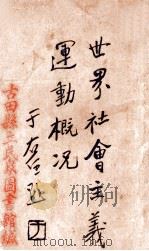 世界社會主義
運動概况
于右任題
古田縣立民衆圖書館藏